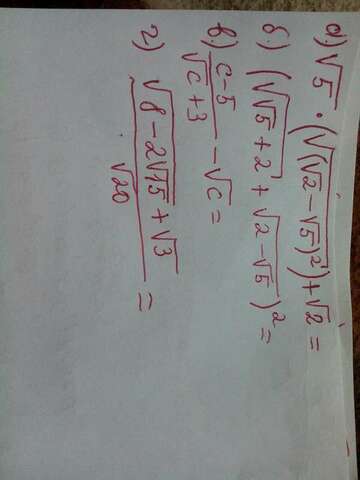 а.) √5 · (√((√2 − √5)²)) + √2 =
б.) (√(√5 + 2) + √(2 − √5))² =
в.) (c − 5)/(√c + 3) − √c =
г) (√(8 − 2√15) + √3)/√20 =